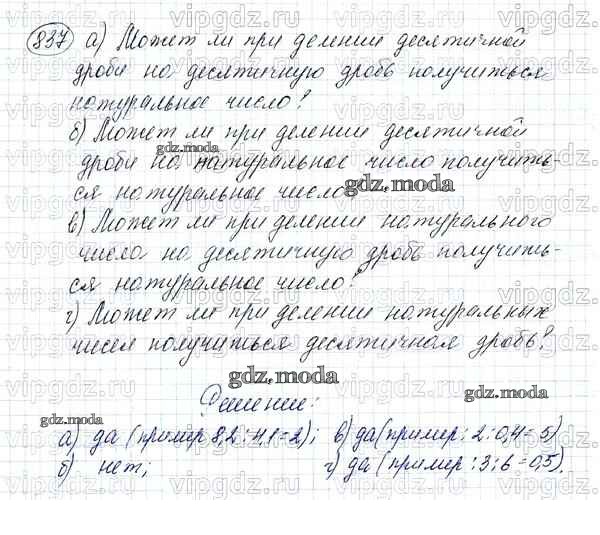 837 а) Может ли при делении десятичной
дроби на десятичную дробь получиться
натуральное число?
б) Может ли при делении десятичной
дроби на натуральное число получить-
ся натуральное число
в) Может ли при делении натурального
числа на десятичную дробь получить-
ся натуральное число?
г) Может ли при делении натуральных
чисел получиться десятичная дробь?
Решение:
а) да (пример 8,2:4,1=2); в) да (пример: 2:0,4=5)
б) нет; г) да (пример: 3:6=0,5).
vipgdz.ru
gdz.moda
gdz.moda
gdz.moda
gdz.moda
gdz.moda
gdz.moda